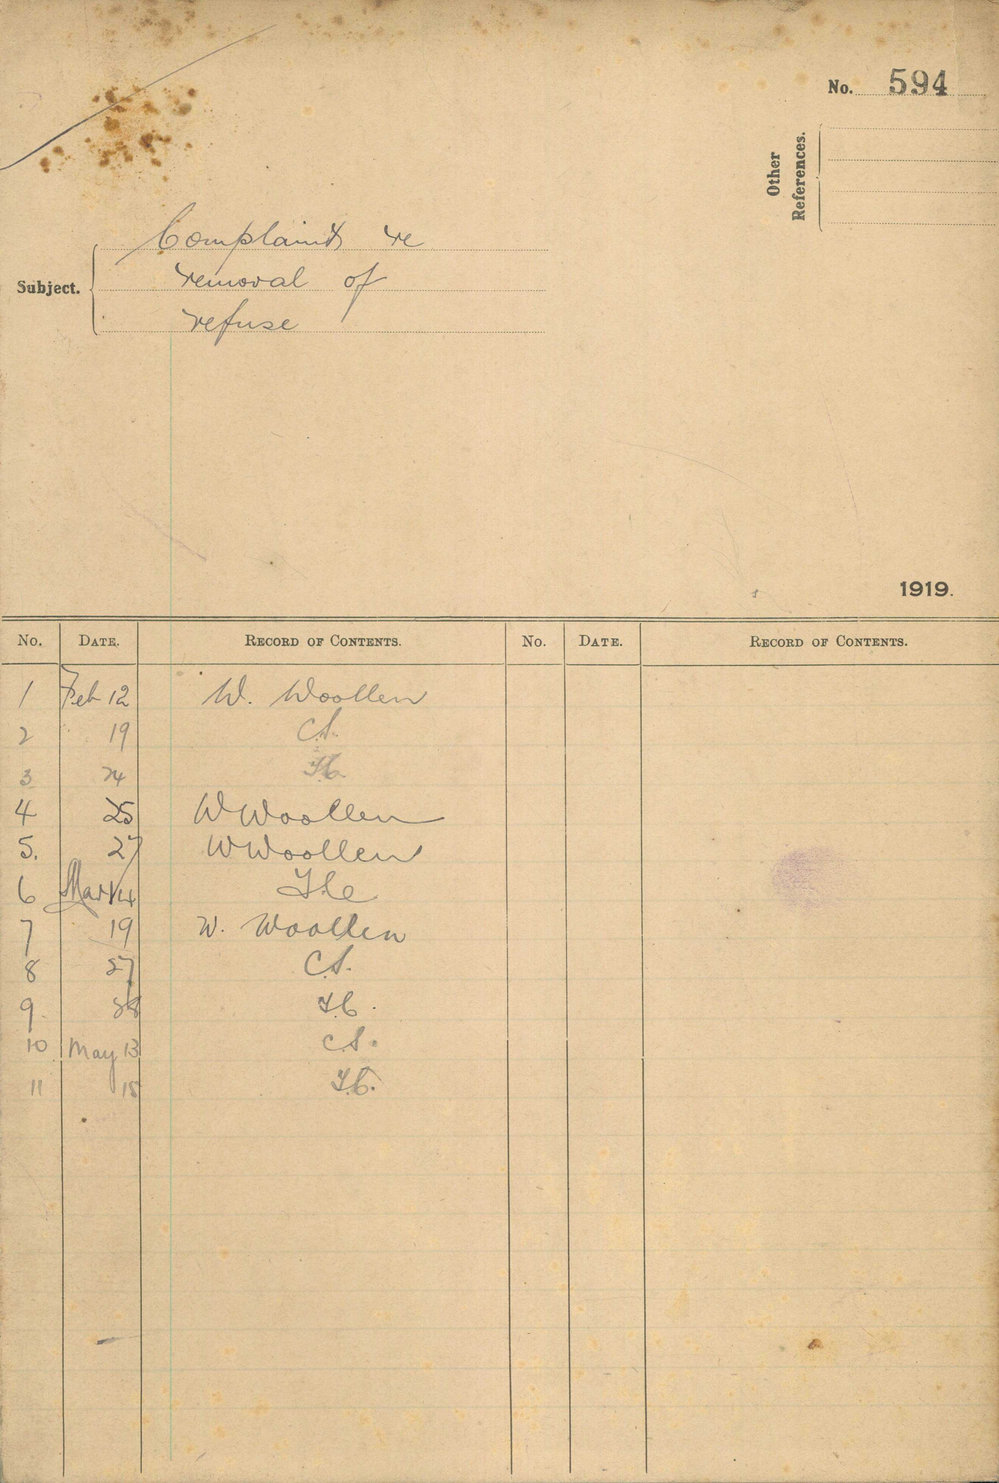 No. 594
Other
References.
Complaints re
Subject. removal of
refuse
1919.
No. DATE. RECORD OF CONTENTS. No. DATE. RECORD OF CONTENTS.
1 Feb 12 W. Woollen
2 19 C.S.
3 24
4 25 W Woollen
5. 27 W Woollen
6 Mar 14
7 19 W. Woollen
8 27 C.S.
9. 28
10 May 13 C.S.
11 15